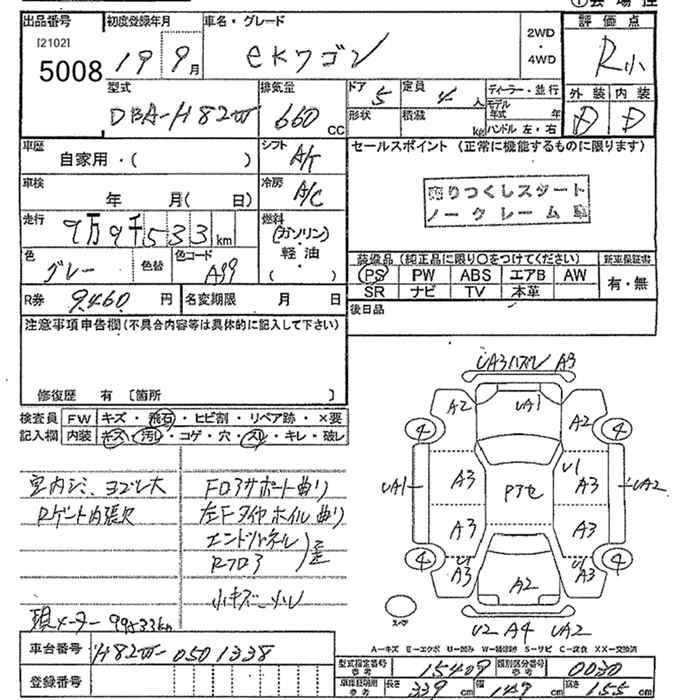 出品番号 初度登録年月 車名・グレード 2WD・4WD 評価点
[2102]
5008 19 9月 eKワゴン R小
型式 排気量 ドア 定員 ディーラー・並行 外装 内装
DBA-H82W 660 CC 5 4人 D D
形状 積載 kg モデル年式 年 ハンドル 左・右
車歴 シフト セールスポイント (正常に機能するものに限ります)
自家用・( ) A/T
車検 冷房
年 月( 日) A/C
売りつくしスタート
ノークレーム車
走行 燃料
9万9千533km (ガソリン)・軽油・( )
色 色替 色コード 装備品 (純正品に限り○をつけてください) 新車保証書
グレー A99 PS PW ABS エアB AW 有・無
SR ナビ TV 本革
R券 9,460 円 名変期限 月 日 後日品
注意事項申告欄(不具合内容等は具体的に記入して下さい)
修復歴 有 〔箇所 〕
検査員 FW キズ・飛石・ヒビ割・リペア跡・×要
記入欄 内装 キズ・汚レ・コゲ・穴・スレ・キレ・破レ
室内シミ、ヨゴレ大 Fロアサポート曲り
Rゲート内張欠 左Fタイヤホイル曲り
エンドパネル
Rフロア 歪
小キズ・凹レ
現メーター 99533km
UA3ハズレ A3
A2 UA1 A2
4 4
UA1 A3 Pアセ U1 A3 UA2
A3 A3
4 4
U1 A3 A2 U1 A3
スペア
U2 A4 UA2
A-キズ E-エクボ U-凹み W-補修跡 S-サビ C-腐食 XX-交換済
車台番号 H82W-0501338
登録番号
型式指定番号 参考 15409 類別区分番号 参考 0030
車検証明用 参考 長さ 339 cm 幅 147 cm 高さ 155 cm